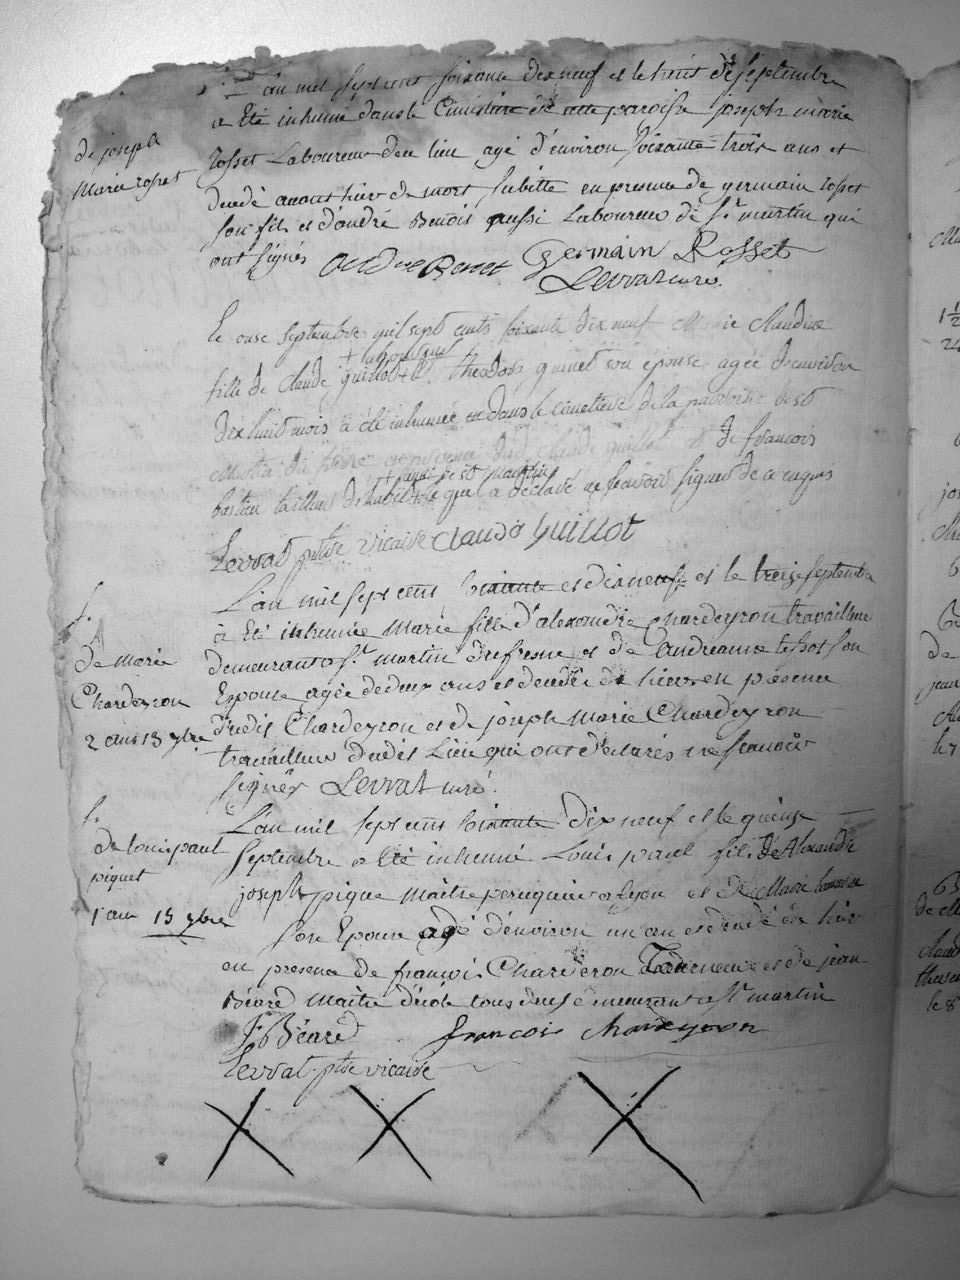 L'an mil sept cent soixante dix neuf et le trois de Septembre
a Eté inhumé dans le Cimetiere de cette paroisse joseph marie
de joseph
Marie rosset
rosset Laboureur de ce lieu agé d'environ soixante trois ans et
decedé avant hier de mort subitte en presence de germain rosset
son fils et d'andré Benoit aussi Laboureur de st martin qui
ont signés
Germain Rosset
Lerrat curé
Le onse septembre mil sept cents soixante dix neuf Marie Claudine
fille de Claude guillot theodora son épouse agée d'environ
dix huit mois à été inhumée dans le cimetiere de la paroisse de st
Martin claude guillot & de francois
qui a declaré ne scavoir signer de ce requis
Lerrat ptre vicaire claude Guillot
L'an mil sept cent soixante et dix neuf et le treize septembre
S.
à Eté inhumée Marie fille d'alexandre Chardeyron travailleur
de Marie
Chardeyron
2 ans 13 7bre
demeurant a st martin et de son
Epouse agée de deux ans et decedée de hier en présence
dudit Chardeyron et de joseph Marie Chardeyron
travailleur dudit Lieu qui ont declarés ne scavoir
signer Lerrat curé
S.
L'an mil sept cent soixante dix neuf et le quinze
de Louis paul
piquet
1 an 15 7bre
Septembre a Eté inhumé Louis paul fils de Alexandre
joseph pique Maitre peruquier a Lyon et de Marie
son Epouse agé d'environ un an et decedé de hier
en presence de francois Charderon et de jean
Béard Maitre d'école tous deux demeurant a st martin
JBéard francois Chardeyron
Lerrat ptre vicaire